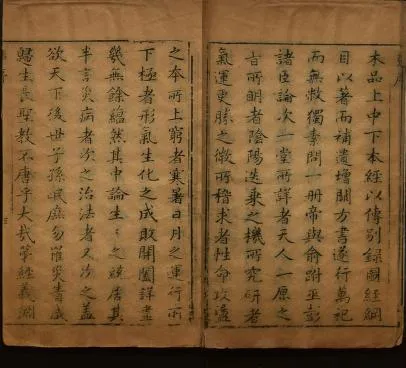 本品上中下本經以傳別錄圖經綱
目以著而補遺增闕方書遂行萬祀
而無救獨素問一冊帝與俞跗巫彭
諸臣論次一堂所詳者天人一原之
旨所明者陰陽迭乘之機所究研者
氣運更勝之微所稽求者性命攻盪
之本所上窮者寒暑日月之運行所
下極者形氣生化之成敗開闔詳盡
幾無餘蘊然其中論生之之競居其
半言災病者次之治法者又次之蓋
欲天下後世子孫氓庶勿罹災眚咸
歸生長聖教不唐乎大哉學經義淵